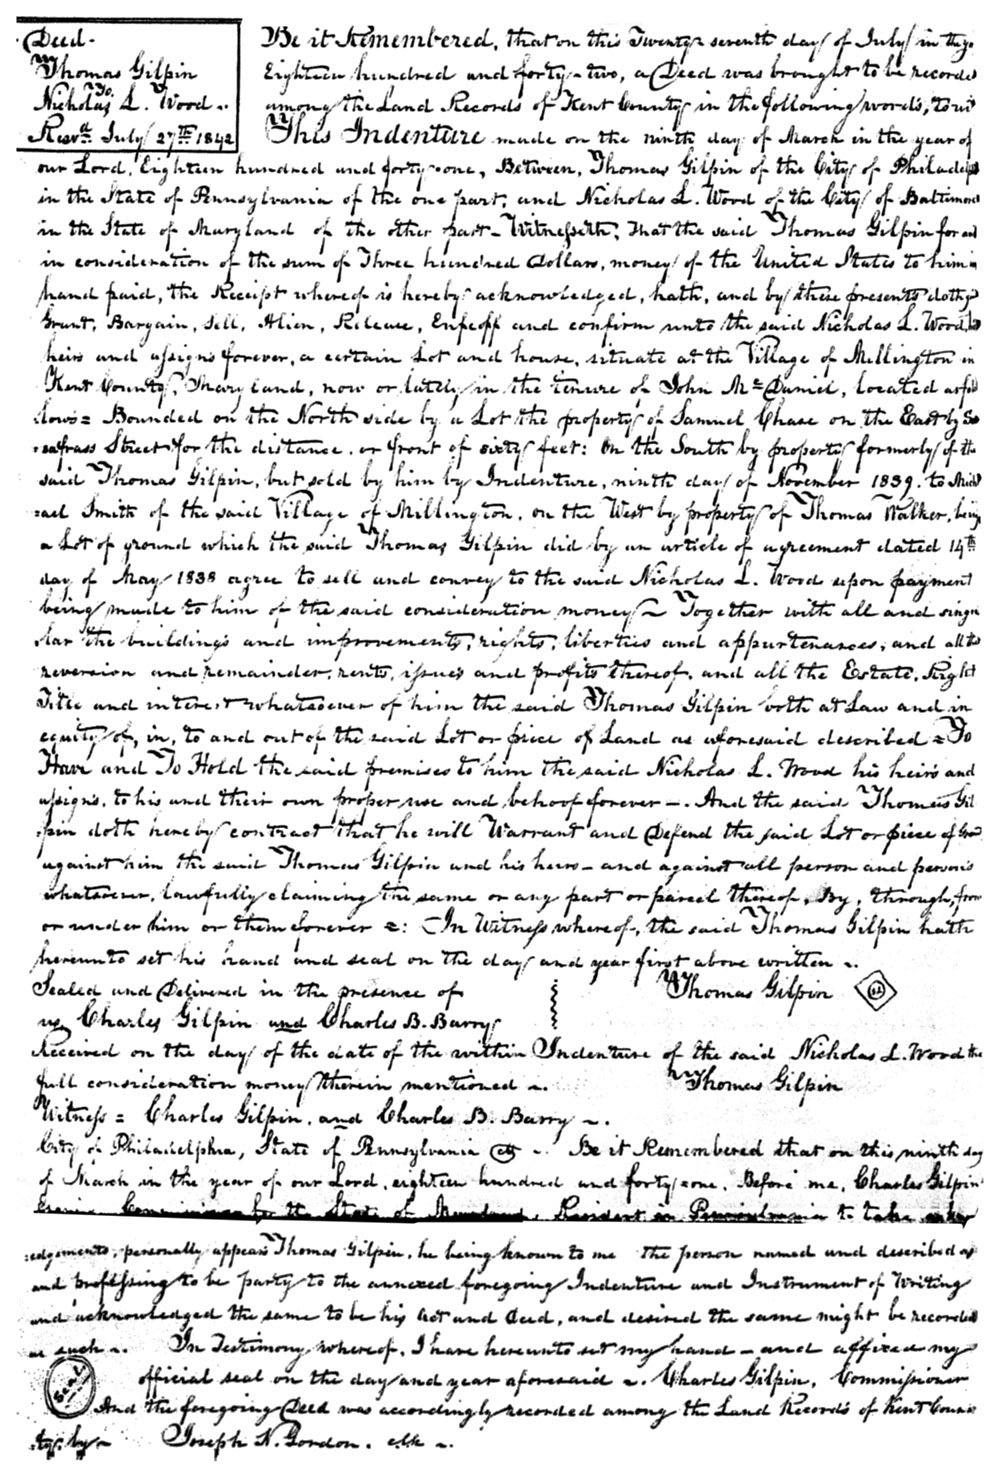 Deed.
Thomas Gilpin
To
Nicholas L. Wood ~.
Recvd. July 27th 1842
Be it Remembered, that on this Twenty seventh day of July in the
Eighteen hundred and forty-two, a Deed was brought to be recorded
among the Land Records of Kent County in the following words, to wit
This Indenture made on the ninth day of March in the year of
our Lord, Eighteen hundred and forty-one, Between, Thomas Gilpin of the City of Philadelp
in the State of Pennsylvania of the one part, and Nicholas L. Wood of the City of Baltimore
in the State of Maryland of the other part - Witnesseth, That the said Thomas Gilpin for and
in consideration of the sum of Three hundred dollars, money of the United States to him in
hand paid, the Receipt whereof is hereby acknowledged, hath, and by these presents doth
Grant, Bargain, Sell, Alien, Release, Enfeoff and confirm unto the said Nicholas L. Wood, his
heirs and assigns forever, a certain Lot and house, situate at the Village of Millington in
Kent County, Maryland, now or lately in the tenure of John Mc Daniel, located as fol
lows = Bounded on the North side by a Lot the property of Samuel Chase on the East by Sas
=safrass Street for the distance, or front of sixty feet: On the South by property formerly of the
said Thomas Gilpin, but sold by him by Indenture, ninth day of November 1839. to Mich
=ael Smith of the said Village of Millington, on the West by property of Thomas Walker, being
a Lot of ground which the said Thomas Gilpin did by an article of agreement dated 14th
day of May 1838 agree to sell and convey to the said Nicholas L. Wood upon payment
being made to him of the said consideration money ~ Together with all and singu
lar the buildings and improvements, rights, liberties and appurtenances, and all the
reversion and remainder, rents, issues and profits thereof, and all the Estate, Right
Title and interest whatsoever of him the said Thomas Gilpin both at Law and in
equity of, in, to and out of the said Lot or piece of Land as aforesaid described = To
Have and To Hold the said premises to him the said Nicholas L. Wood his heirs and
assigns, to his and their own proper use and behoof forever -. And the said Thomas Gil
pin doth hereby contract that he will Warrant and Defend the said Lot or piece of
against him the said Thomas Gilpin and his heirs - and against all person and persons
whatsoever, lawfully claiming the same or any part or parcel thereof, By, through, from
or under him or them forever =: In Witness whereof, the said Thomas Gilpin hath
hereunto set his hand and seal on the day and year first above written ~.
Sealed and Delivered in the presence of Thomas Gilpin
us, Charles Gilpin and Charles B. Barry
Received on the day of the date of the within Indenture of the said Nicholas L. Wood the
full consideration money therein mentioned ~. Thomas Gilpin
Witness = Charles Gilpin, and Charles B. Barry ~.
City of Philadelphia, State of Pennsylvania ~. Be it Remembered that on this ninth day
of March in the year of our Lord, eighteen hundred and forty-one, Before me, Charles Gilpin
Commissioner for the State of Maryland, Resident in Pennsylvania to take
edgements, personally appears Thomas Gilpin, he being known to me the person named and described as
and professing to be party to the annexed foregoing Indenture and Instrument of Writing
and acknowledged the same to be his act and deed, and desired the same might be recorded
as such ~. In Testimony whereof, I have hereunto set my hand - and affixed my
official seal on the day and year aforesaid ~. Charles Gilpin, Commissioner
Seal
And the foregoing Deed was accordingly recorded among the Land Records of Kent Coun
ty, by ~ Joseph N. Gordon. clk ~.